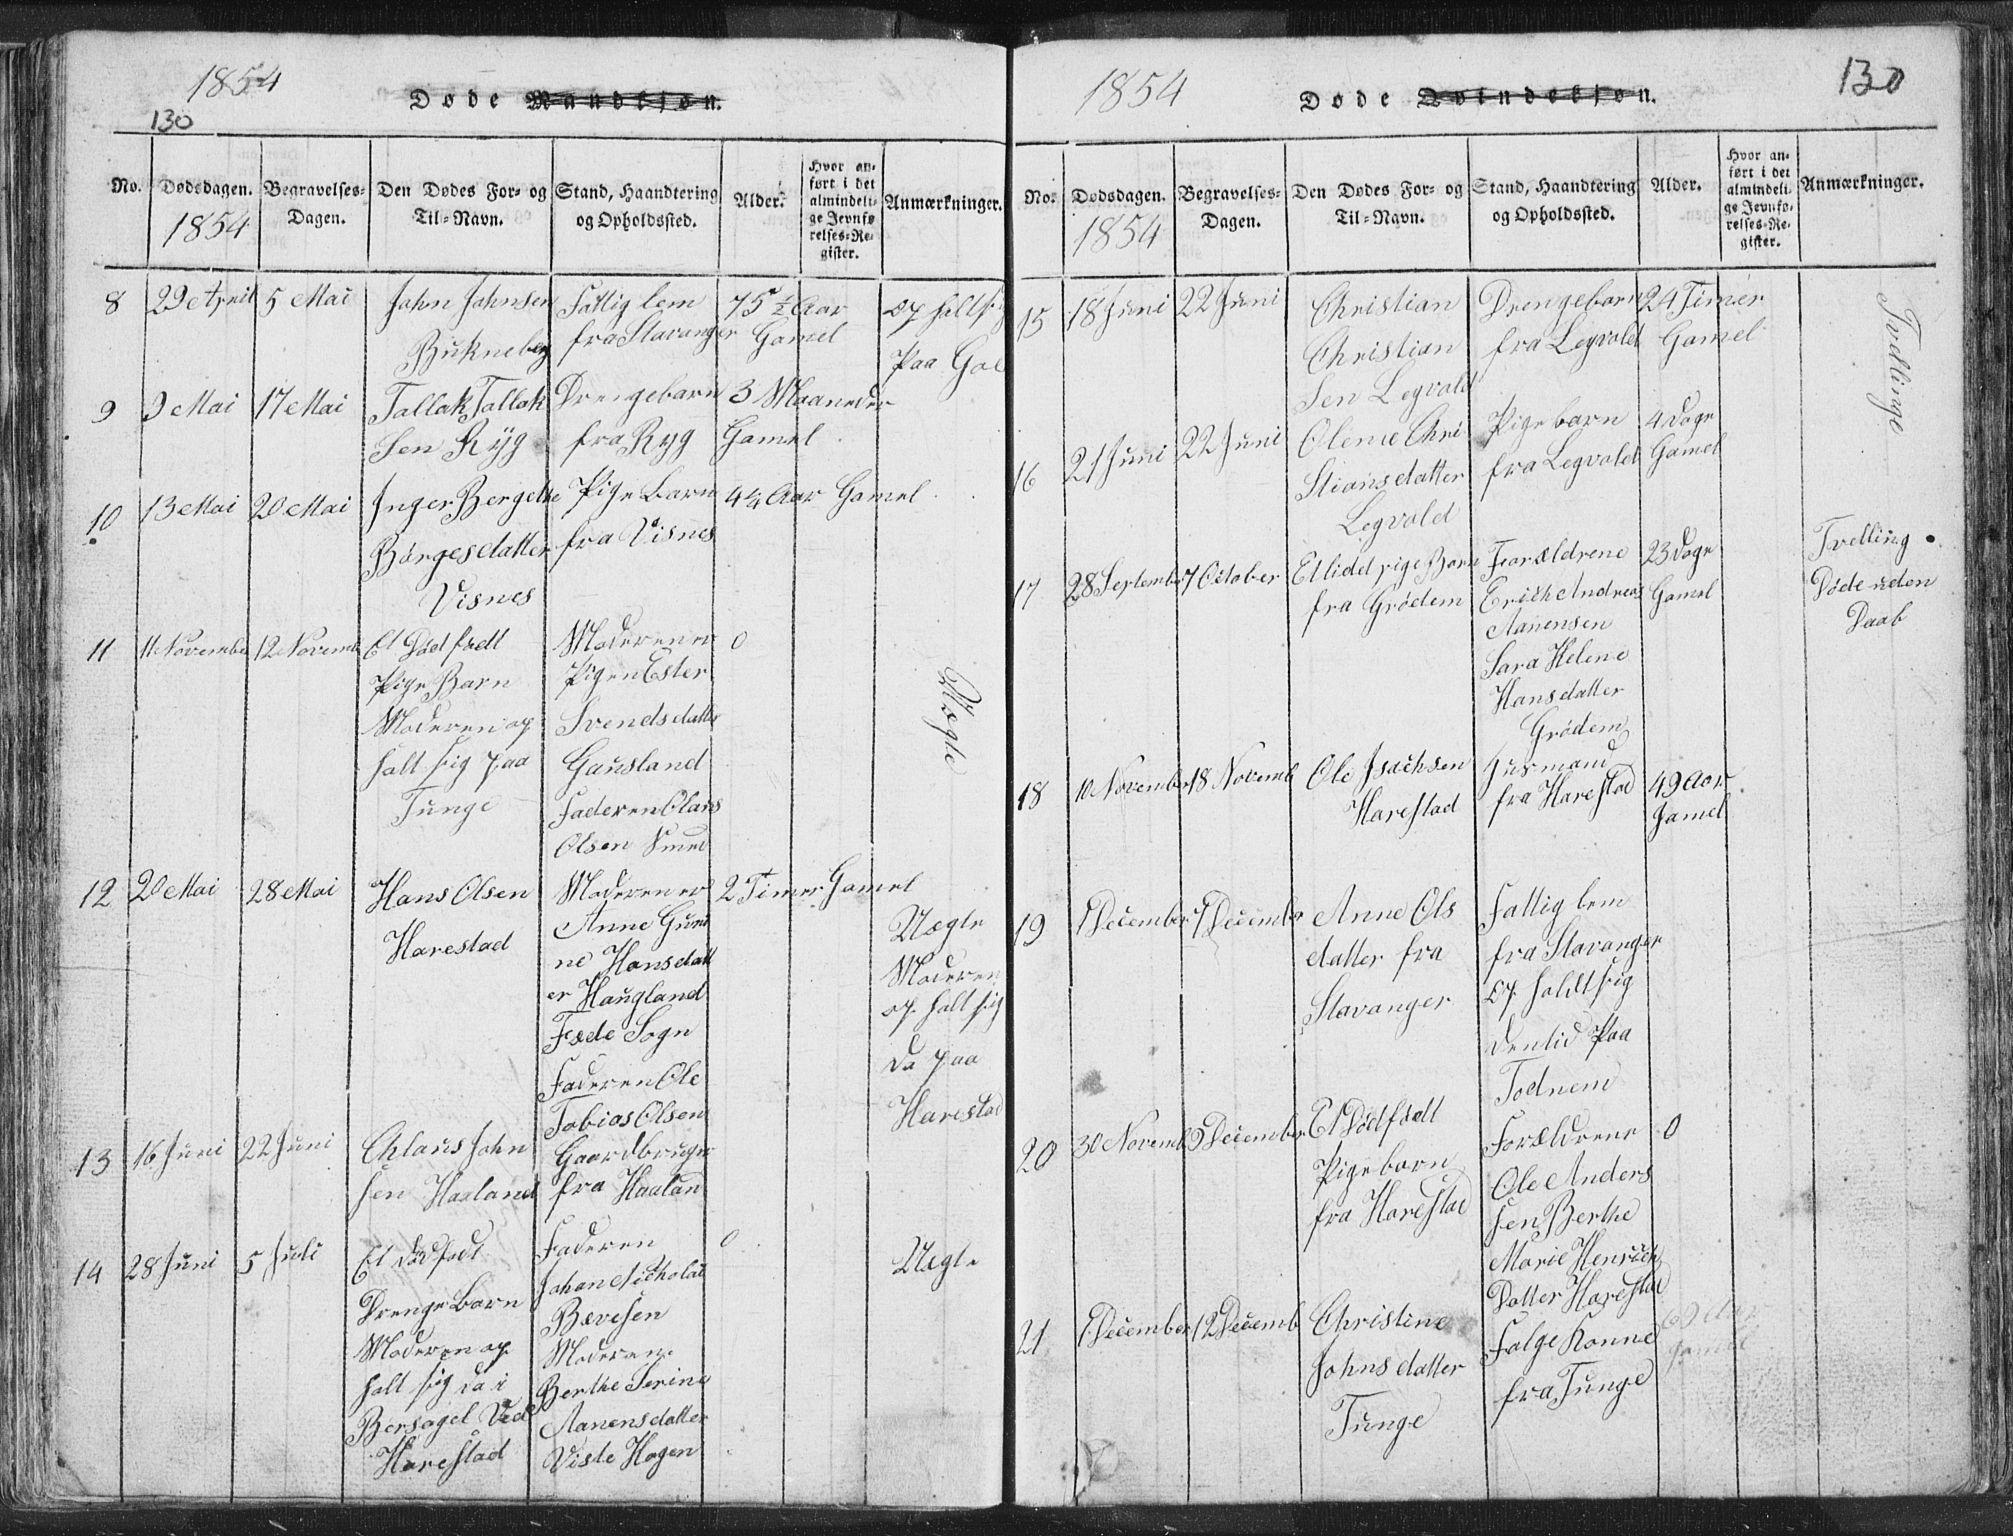 1854
Døde Mandkjøn.
130
No.
Dødsdagen.
1854
Begravelses-
Dagen.
Den Dødes For- og
Til-Navn.
Stand, Haandtering
og Opholdssted.
Alder.
Hvor an-
ført i det
almindeli-
ge Jevnfø-
relses-Re-
gister.
Anmærkninger.
8 29 April 5 Mai
John Johnsen
Bukneberg
Fattig lem
fra Stavanger
75 ½ Aar
Gamel
op holt sig
paa Goe
9 9 Mai 17 Mai
Tallak Tallak
Sen Ryg
Drengebarn
fra Ryg
3 Maaneder
Gamel
10 13 Mai 20 Mai
Inger Bergethe
Børgesdatter
Visnes
Pige Barn
fra Visnes
4¼ Aar Gamel
11 11 November 12 Novemb
Et Død født
Pige Barn
Moderen op
holt sig paa
Tunge
Moderen er
Pigen Ester
Svendsdatter
Gausland
Faderen Olaus
Olsen Smed
0
Uægte
12 20 Mai 28 Mai
Hans Olsen
Harestad
Moderen er
Anne Guni
ne Hansdatt
er Haugland
Fæde Sogn
Faderen Ole
Tobias Olsen
2 Timer Gamel
Uægte
Moderen
op holt sig
da paa
Harestad
13 16 Juni 22 Juni
Chlaus John
sen Haaland
Gaardbruger
fra Haalan
14 28 Juni 5 Juli
Et dødfødt
Drenge Barn
Moderen op
holt sig da i
Bersagel Ved
Harestad
Faderen
Johan Nicholai
Bævesen
Moderen
Berthe Serine
Aanensdatter
Viste Hagen
0
Uægte
1854
Døde Qvindekjøn.
130
No.
Dødsdagen.
1854
Begravelses-
Dagen.
Den Dødes For- og
Til-Navn.
Stand, Haandtering
og Opholdssted.
Alder.
Hvor an-
ført i det
almindeli-
ge Jevnfø-
relses-Re-
gister.
Anmærkninger.
15 18 Juni 22 Juni
Christian
Christian
Sen Legvold
Drengebarn
fra Legvold
24 Timer
Gamel
Tvillinge
16 21 Juni 22 Juni
Olene Chri
Stiansdatter
Legvold
Pigebarn
fra Legvold
4 Dage
Gamel
17 28 September 7 October
Et lidet pige Barn
fra Grødem
Forældrene
Erich Andreas
Aanensen
Sara Helene
Hansdatter
Grødem
23 Dage
Gamel
Tvelling
Døde uden
Daab
18 10 November 18 Novemb
Ole Isachsen
Harestad
Husmand
fra Harestad
49 Aar
Gamel
19 1 December 7 December
Anne Ols
datter fra
Stavanger
Fattig lem
fra Stavanger
op holdt sig
den tid paa
Todnem
20 30 Novemb 9 December
Et Dødfødt
Pigebarn
fra Harestad
Forældrene
Ole Anders
sen Berthe
Marie Henrich
Datter Harestad
0
21 6 December 12 Decemb
Christine
Johnsdatter
Tunge
Følge Konne
fra Tunge
69 Aar
Gamel